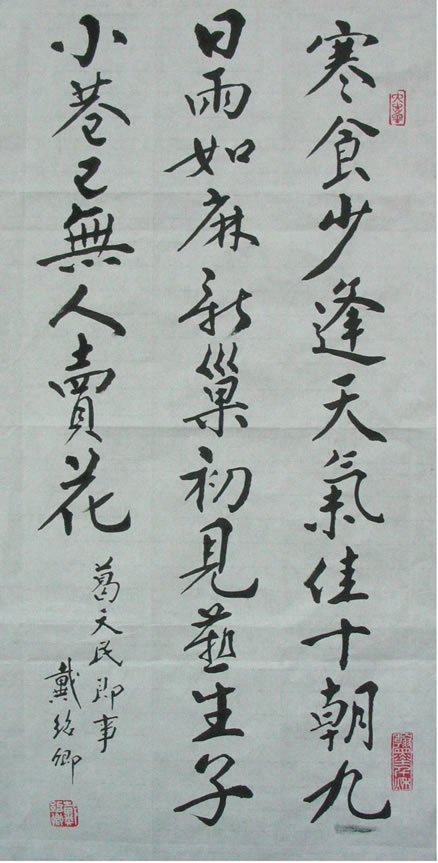 寒食少逢天氣佳十朝九
日雨如麻新巢初見燕生子
小巷已無人賣花
葛天民即事
戴紹卿